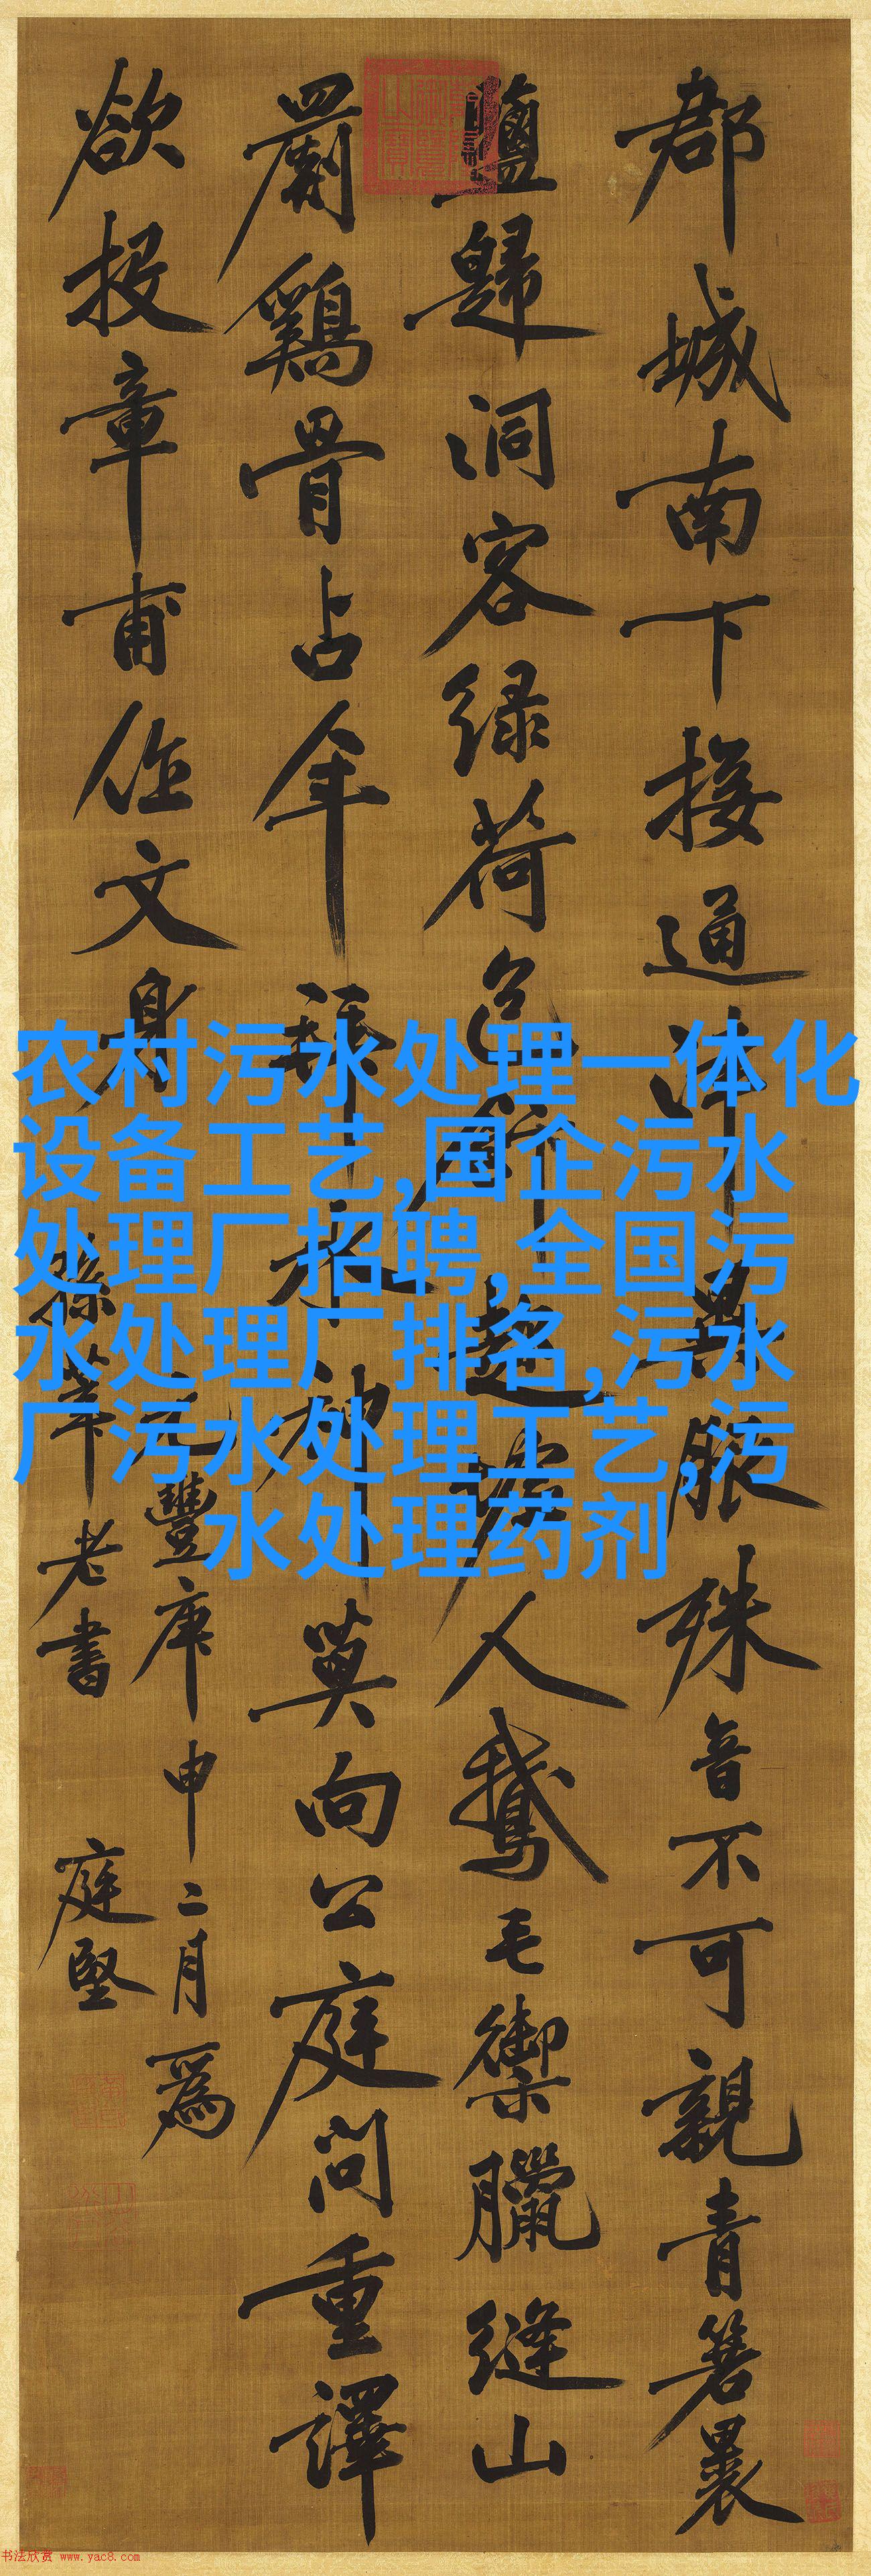 郡城南下接通津異服殊音不可親青箬裹
鹽歸洞客緑荷包飯趁墟人鵝毛御臘縫山
罽鷄骨占年拜水神莫向公庭問重譯
欲投章甫作文身
元豐庚申二月爲
孫莘老書 庭堅
农村污水处理一体化
设备工艺,国企污水
处理厂招聘,全国污
水处理厂排名,污水
厂污水处理工艺,污
水处理药剂
书法欣赏 www.yac8.com